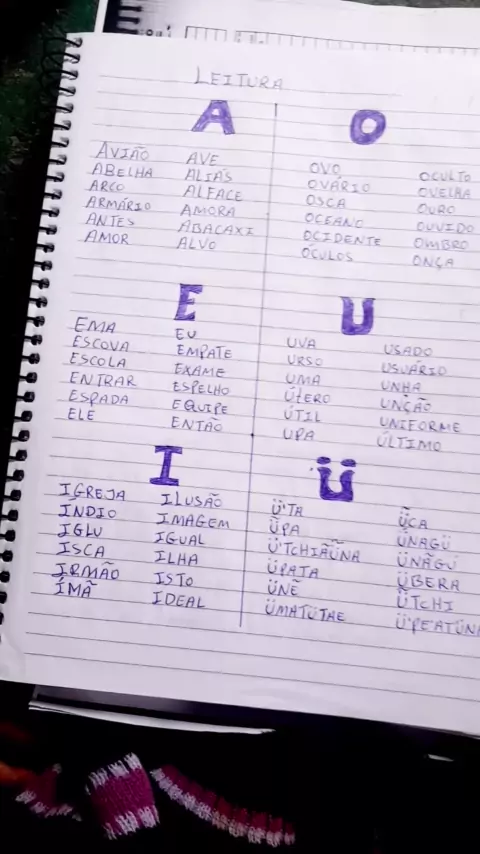 LEITURA
A
AVIÃO AVE
ABELHA ALIÁS
ARCO ALFACE
ARMÁRIO AMORA
ANTES ABACAXI
AMOR ALVO
O
OVO OCULTO
OVÁRIO OVELHA
OSCA OURO
OCEANO OUVIDO
OCIDENTE OMBRO
ÓCULOS ONÇA
E
EMA EU
ESCOVA EMPATE
ESCOLA EXAME
ENTRAR ESPELHO
ESPADA EQUIPE
ELE ENTÃO
U
UVA USADO
URSO USUÁRIO
UMA UNHA
ÚTERO UNÇÃO
ÚTIL UNIFORME
UPA ÚLTIMO
I
IGREJA ILUSÃO
INDIO IMAGEM
IGLU IGUAL
ISCA ILHA
IRMÃO ISTO
ÍMÃ IDEAL
Ü
Ü'TA
ÜPA ÜNAGÜ
ÜPATA ÜBERA
ÜNẼ
ÜMATÜTAE